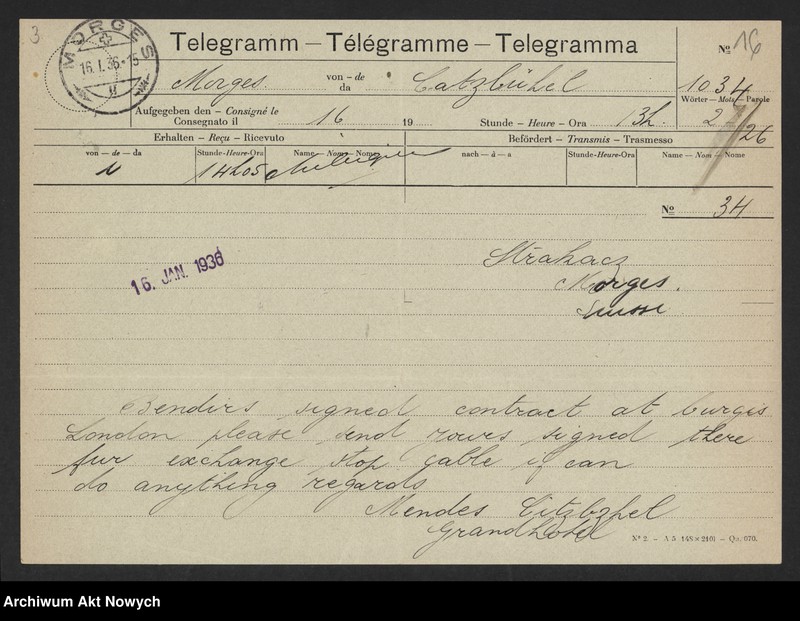 3
MORGES
16.I.36-15
Telegramm – Télégramme – Telegramma
№ 16
Morges.
von – de
da
Catzbühel
1034
Wörter – Mots – Parole
Aufgegeben den – Consigné le
Consegnato il
16
19
Stunde – Heure – Ora
13h.
2
26
Erhalten – Reçu – Ricevuto
Befördert – Transmis – Trasmesso
von – de – da
Stunde-Heure-Ora
Name – Nom – Nome
nach – à – a
Stunde-Heure-Ora
Name – Nom – Nome
14h05
№ 34
Strakacz
Morges.
Suisse
16. JAN. 1936
Bendirs signed contract at curgis
London please send yours signed there
fur exchange stop cable if can
do anything regards
Mendes Citzbzhel
Grandhotel
Nº 2. – A 5 (148×210) – Qu. 070.
Archiwum Akt Nowych